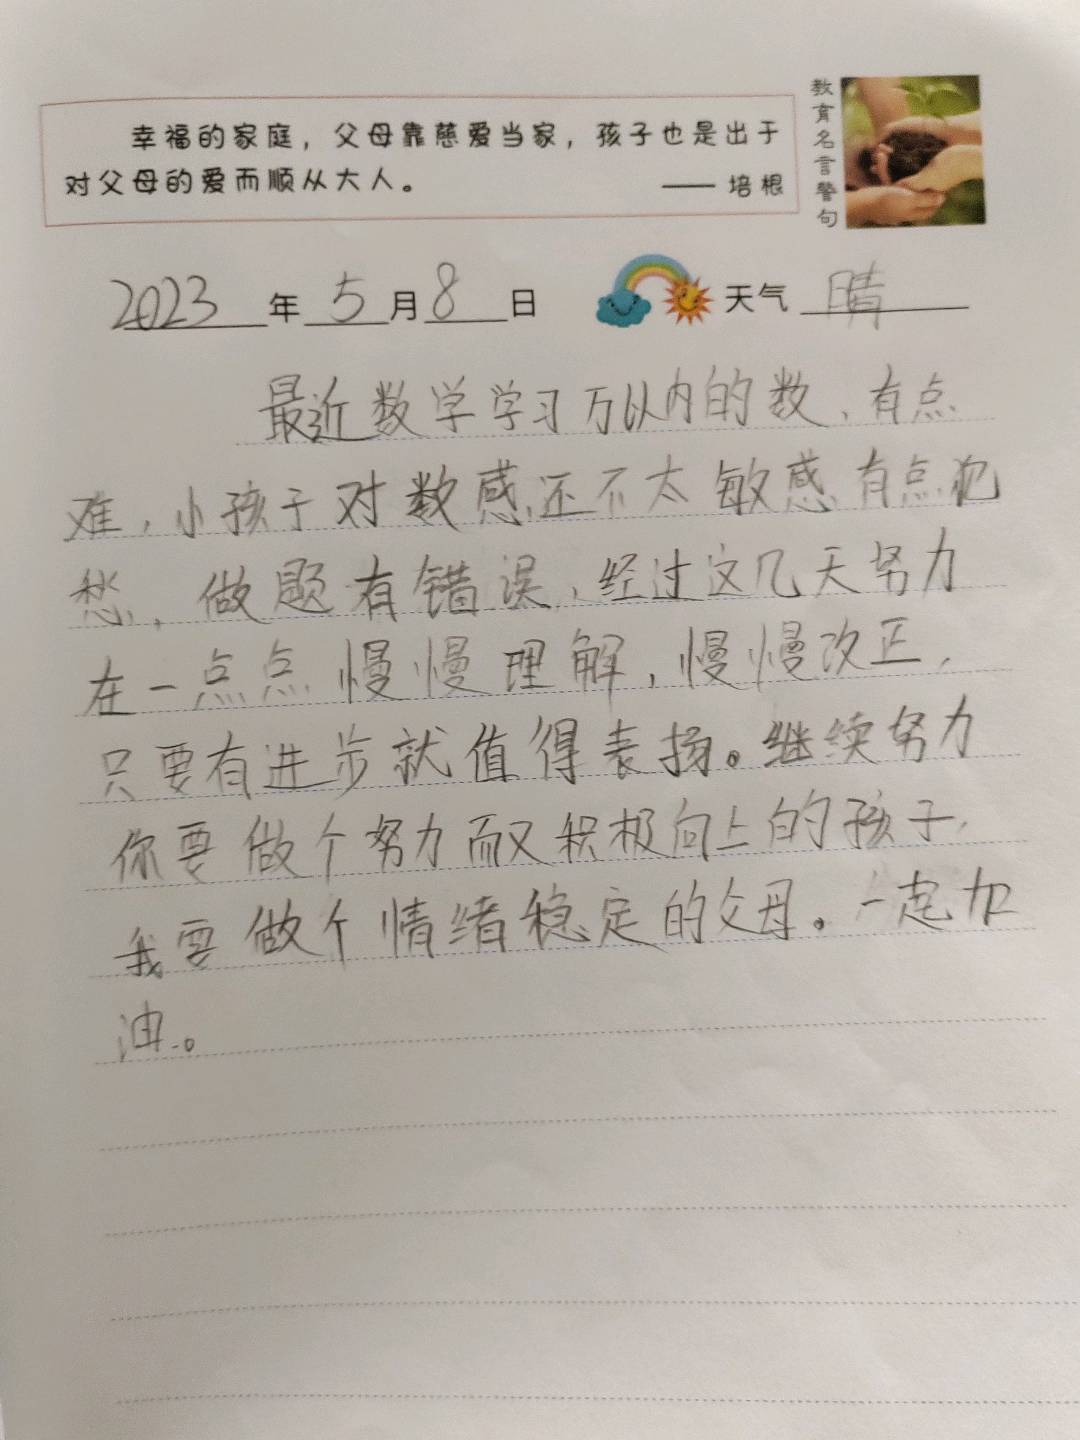 幸福的家庭，父母靠慈爱当家，孩子也是出于
对父母的爱而顺从大人。 —— 培根
教育名言警句
2023年5月8日 天气 晴
最近数学学习万以内的数、有点
难，小孩子对数感还不太敏感有点犯
愁，做题有错误，经过这几天努力
在一点点慢慢理解，慢慢改正，
只要有进步就值得表扬。继续努力
你要做个努力而又积极向上的孩子，
我要做个情绪稳定的父母。一起加
油。